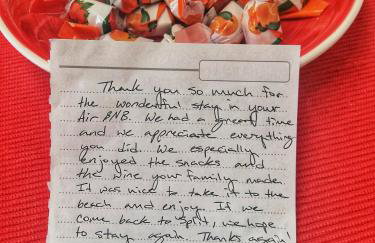 Thank you so much for
the wonderful stay in your
Air BNB. We had a great time
and we appreciate everything
you did. We especially
enjoyed the snacks and
the wine your family made.
It was nice to take it to the
beach and enjoy. If we
come back to Split, we hope
to stay again. Thanks again!